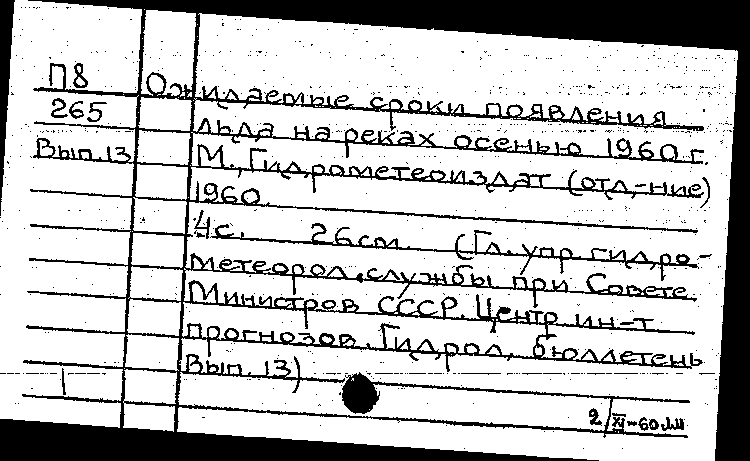 П8
265
Вып.13
Ожидаемые сроки появления
льда на реках осенью 1960 г.
М., Гидрометеоиздат (отд-ние)
1960.
4с. 26см. (Гл. упр. гидро-
метеорол. службы при Совете
Министров СССР. Центр. ин-т
прогнозов. Гидрол. бюллетень
Вып. 13)
1
2/XI-60